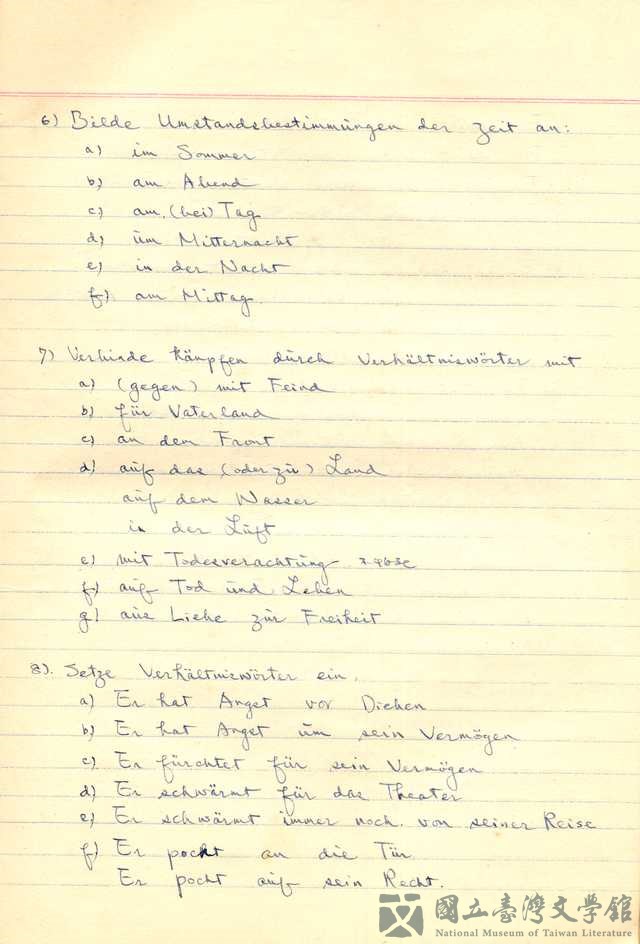 6) Bilde Umstandsbestimmungen der Zeit an:
a) im Sommer
b) am Abend
c) am (bei) Tag
d) um Mitternacht
e) in der Nacht
f) am Mittag
7) Verbinde kämpfen durch Verhältniswörter mit
a) (gegen) mit Feind
b) für Vaterland
c) an dem Front
d) auf das (oder zu) Land
auf dem Wasser
in der Luft
e) mit Todesverachtung
f) auf Tod und Leben
g) aus Liebe zur Freiheit
8). Setze Verhältniswörter ein.
a) Er hat Angst vor Dieben
b) Er hat Angst um sein Vermögen
c) Er fürchtet für sein Vermögen
d) Er schwärmt für das Theater
e) Er schwärmt immer noch von seiner Reise
f) Er pocht an die Tür.
Er pocht auf sein Recht.
國立臺灣文學館
National Museum of Taiwan Literature